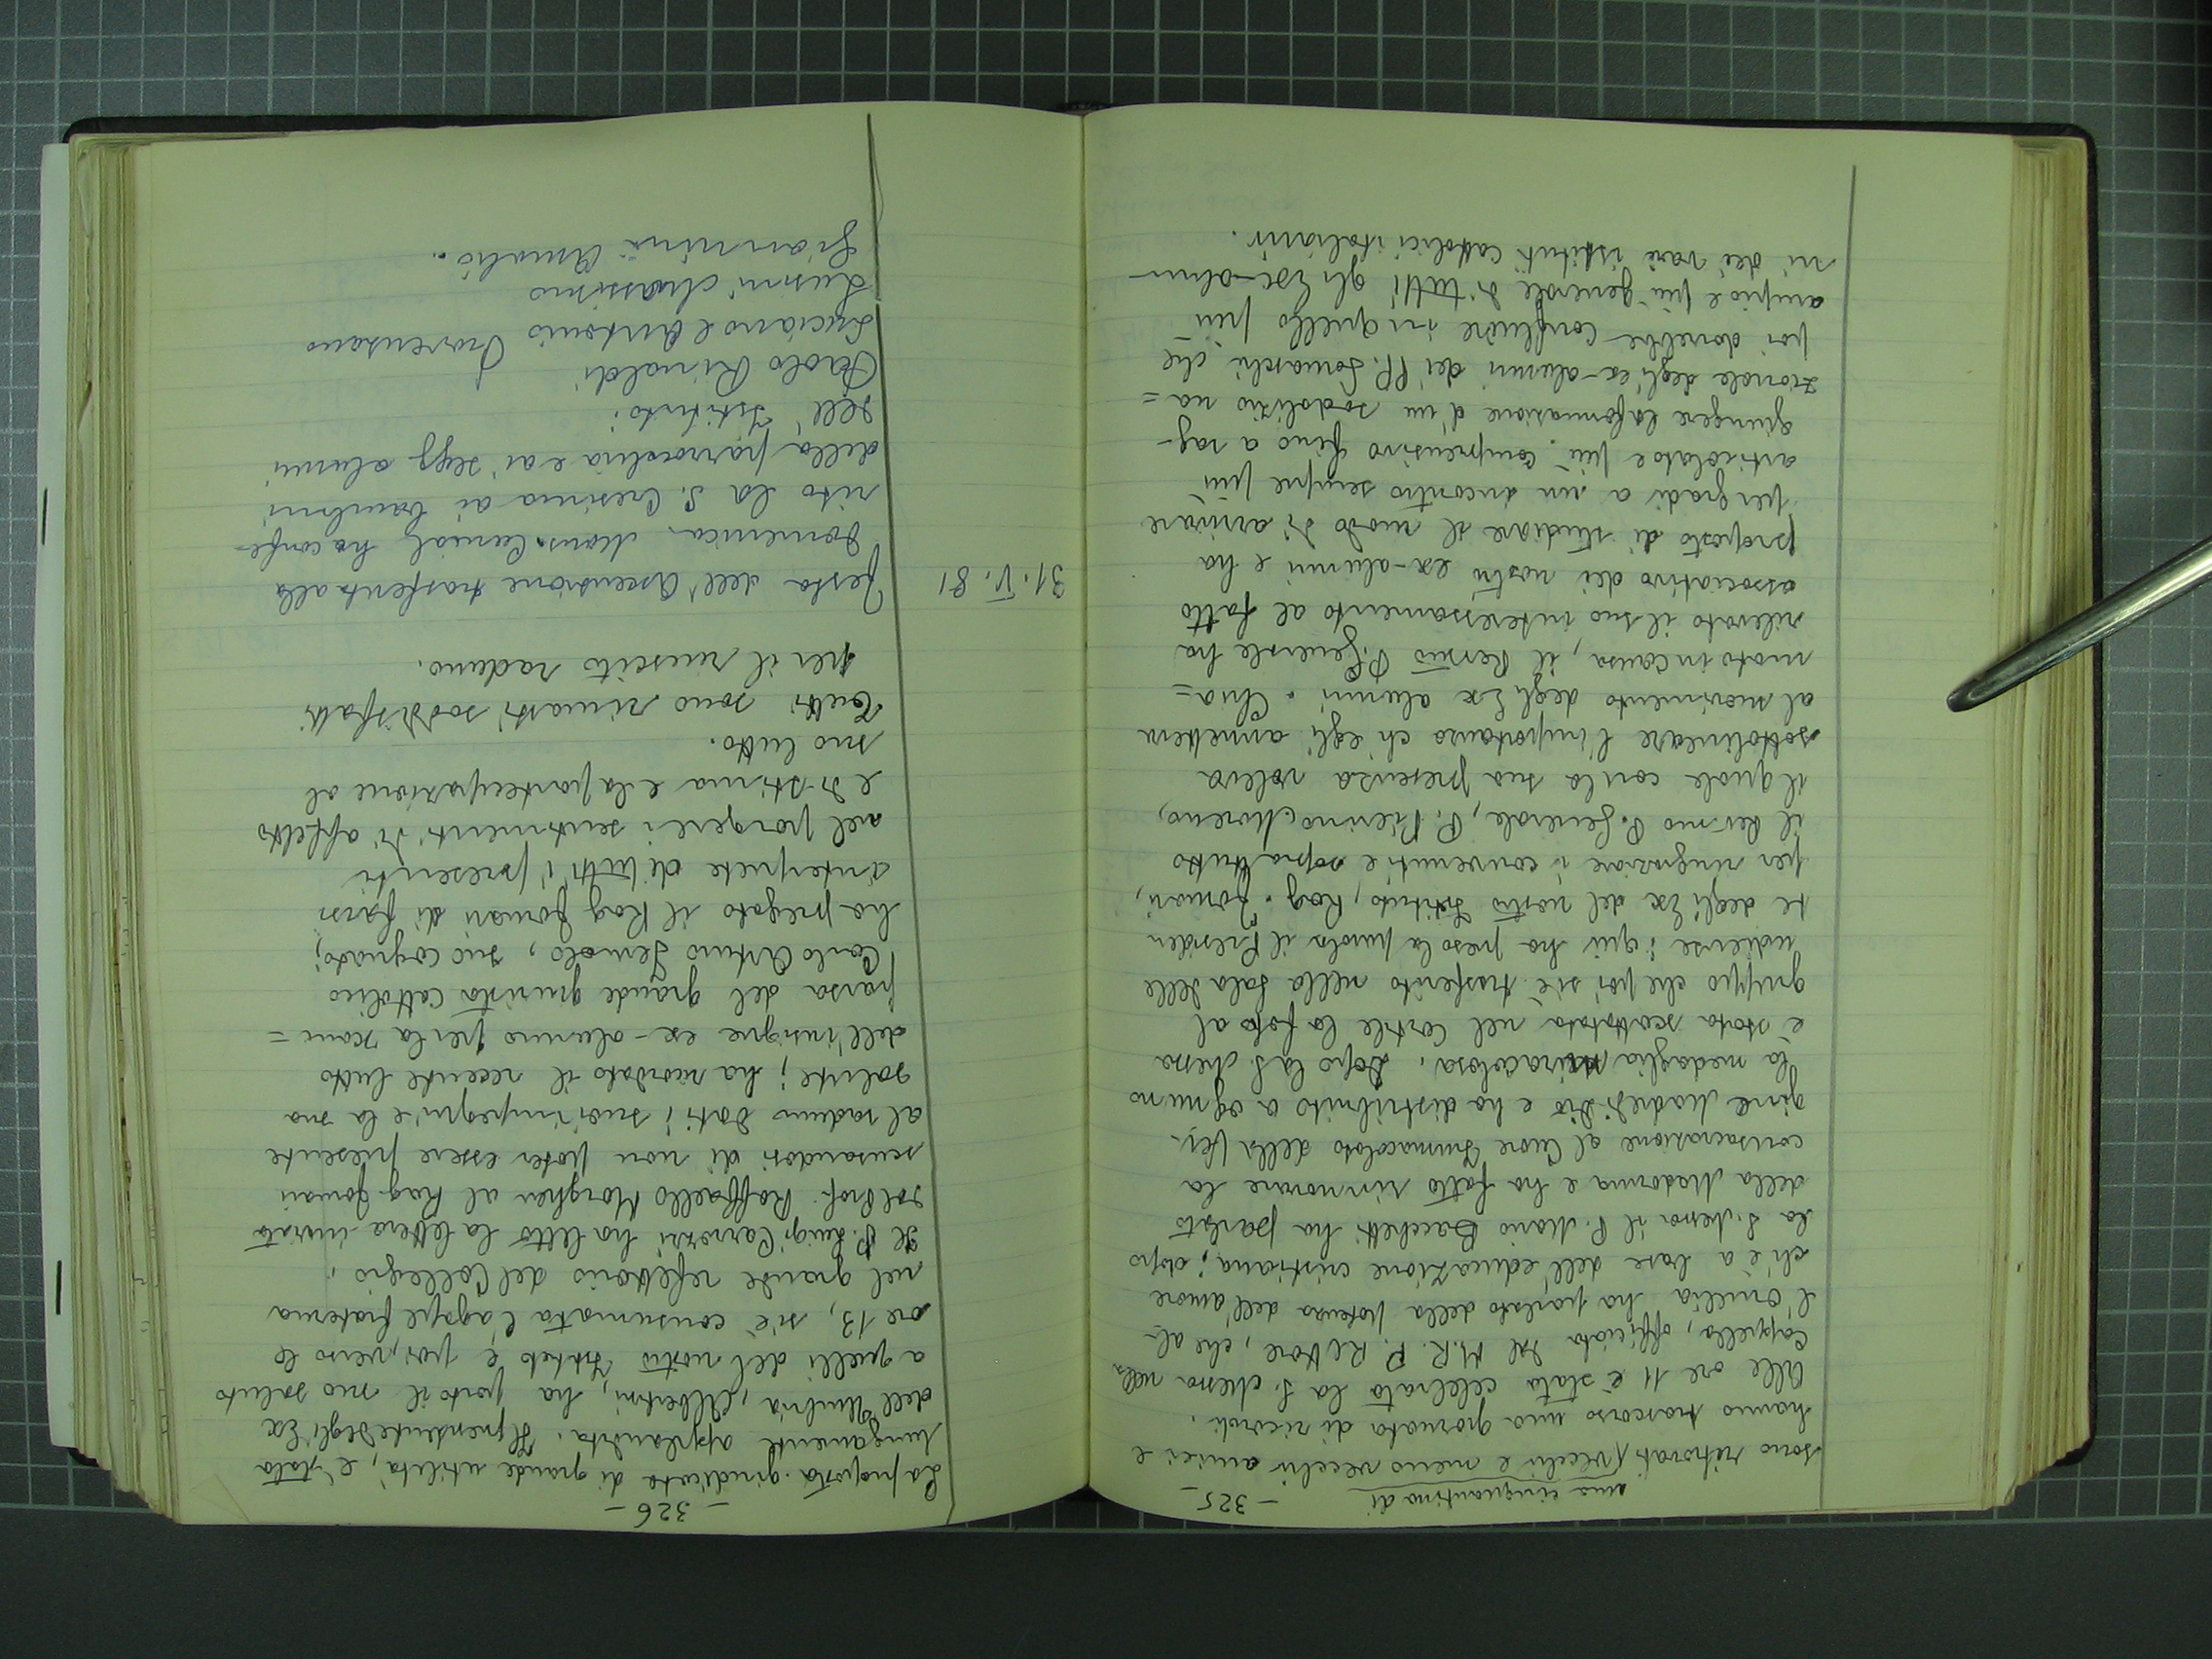 - 325 -
una cinquantina di
sono ritrovati vecchi e meno vecchi amici e
hanno trascorso una giornata di ricordi.
Alle ore 11 è stata celebrata la S. Messa nella
Cappella, officiata dal M.R.P. Rettore, che al-
l'Omelia ha parlato della potenza dell'amore
ch'è a base dell'educazione cristiana; dopo
la S. Messa il P. Mario Bacchetti ha parlato
della Madonna e ha fatto rinnovare la
consacrazione al Cuore Immacolato della Ver-
gine Madre di Dio e ha distribuito a ognuno
la medaglia miracolosa. Dopo la S. Messa
è stata scattata nel Cortile la foto al
gruppo che poi si è trasferito nella Sala delle
udienze; qui ha preso la parola il Presiden
te degli Ex del nostro Istituto, Rag.
per ringraziare i convenuti e sopratutto
il Rev.mo P. Generale, P. Pierino Moreno,
il quale con la sua presenza voleva
sottolineare l'importanza ch'egli annetteva
al movimento degli Ex alunni. Chia=
mato in causa, il Rev.mo P. Generale ha
rilevato il suo interessamento al fatto
associativo dei nostri ex-alunni e ha
proposto di studiare il modo di arrivare
per gradi a un incontro sempre più
articolato e più comprensivo fino a rag-
giungere la formazione d'un sodalizio na=
zionale degli ex-alunni dei PP. Somaschi che
poi dovrebbe confluire in quello più
ampio e più generale di tutti gli Ex-alun-
ni dei vari istituti cattolici italiani.
- 326 -
La proposta giudicata di grande utilità, è stata
lungamente applaudita. Il presidente degli Ex
dell'Umbria, Albertini, ha porto il suo saluto
a quelli del nostro Istituto e poi, verso le
ore 13, si è consumata l'agape fraterna
nel grande refettorio del Collegio.
Il P. Luigi Carrozzi ha letto la lettera inviata
dal Prof. Raffaello Morghen al Rag.
scusandosi di non poter essere presente
al raduno dati i suoi impegni e la sua
salute; ha ricordato il recente lutto
dell'insigne ex-alunno per la scom=
parsa del grande giurista cattolico
Carlo Arturo Jemolo, suo cognato;
ha pregato il Rag. di farsi
interprete di tutti i presenti
nel porgere i sentimenti di affetto
e di stima e la partecipazione al
suo lutto.
Tutti sono rimasti soddisfatti
per il riuscito raduno.
31.V.81 Festa dell'Ascensione trasferita alla
domenica. Mons. Canisal ha confe-
rito la S. Cresima ai bambini
della parrocchia e ai segg. alunni
dell'Istituto:
Paolo Rinaldi
Luciano e Antonio Provenzano
Massimo
Giannini Amalio.